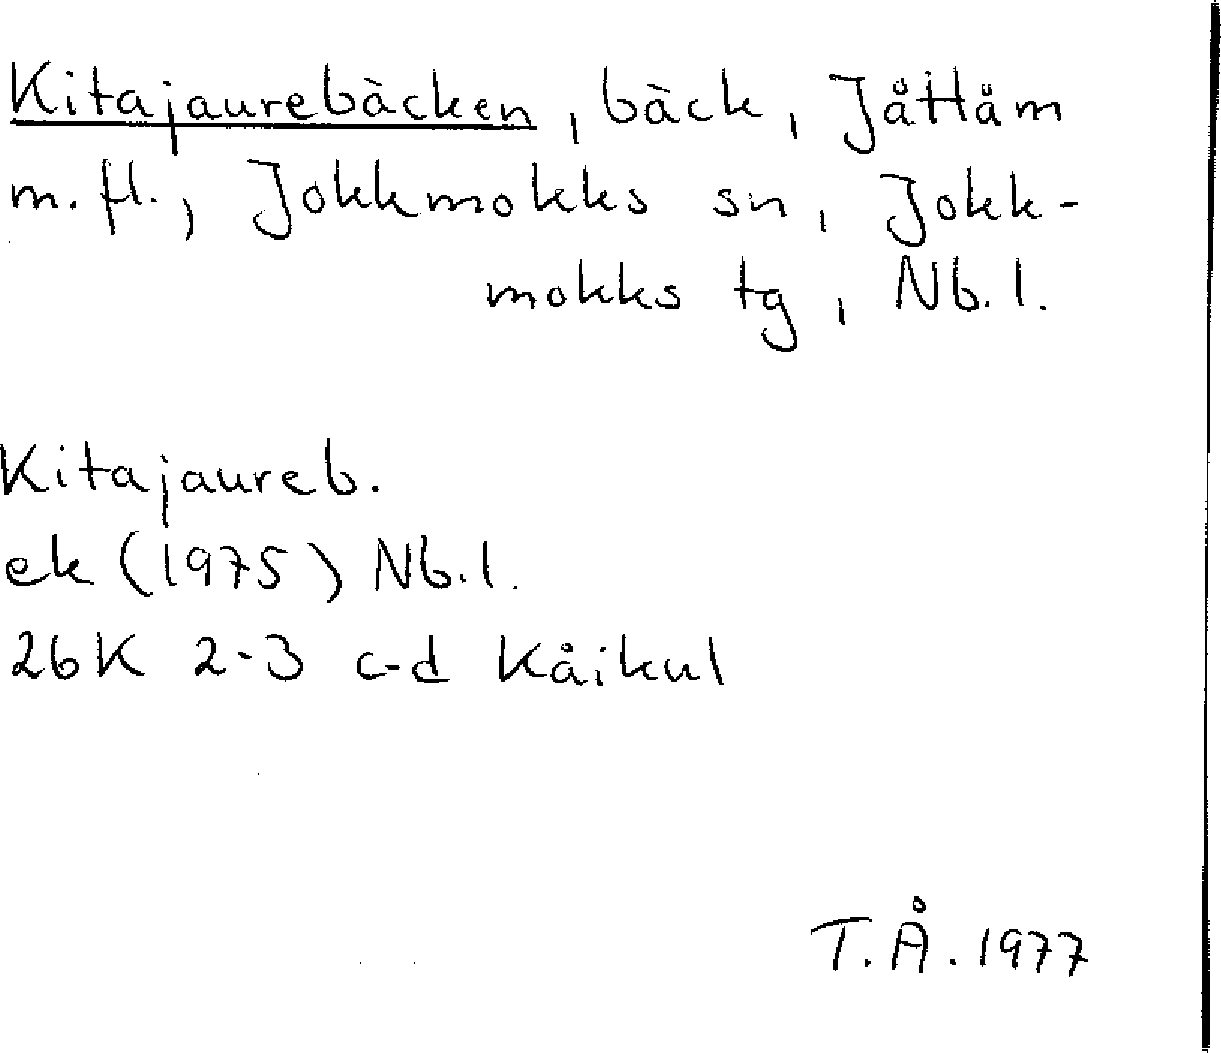 Kitajaurebäcken, bäck, Jåttåm
m.fl., Jokkmokks sn, Jokk-
mokks tg, Nb.l.
Kitajaureb.
ek (1975) Nb.l.
26K 2-3 c-d Kåikul
T.Å. 1977